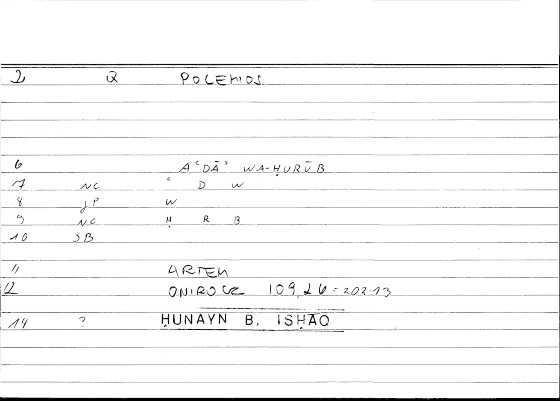 2 Q POLEMOS
6 AʿDĀʾ WA-ḤURŪB
7 NC ʿ D W
8 JP W
9 NC Ḥ R B
10 SB
11 ARTEM
12 ONIROCR 109,26 = 202.13
14 ? ḤUNAYN B. ISḤĀQ